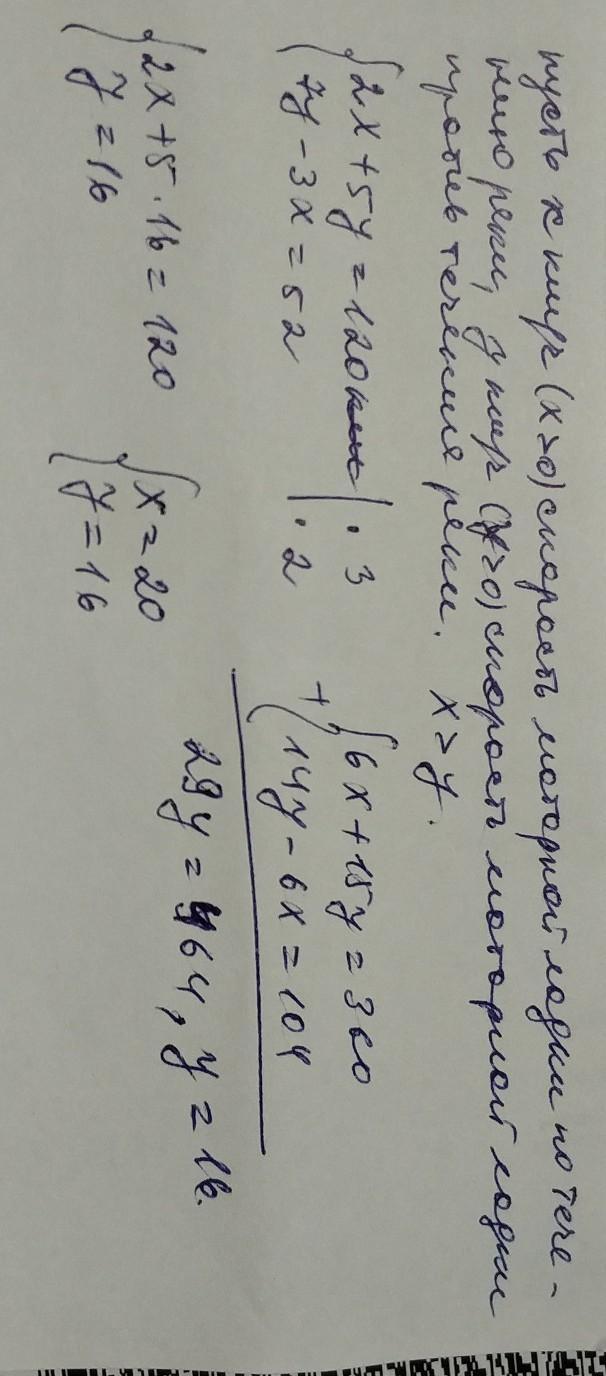 пусть x км/ч (x>0) скорость моторной лодки по тече-
нию реки, y км/ч (y>0) скорость моторной лодки
против течения реки. x>y.
{2x+5y=120 |·3 {6x+15y=360
{7y-3x=52 |·2 + {14y-6x=104
29y=464, y=16.
{2x+5·16=120 {x=20
{y=16 {y=16